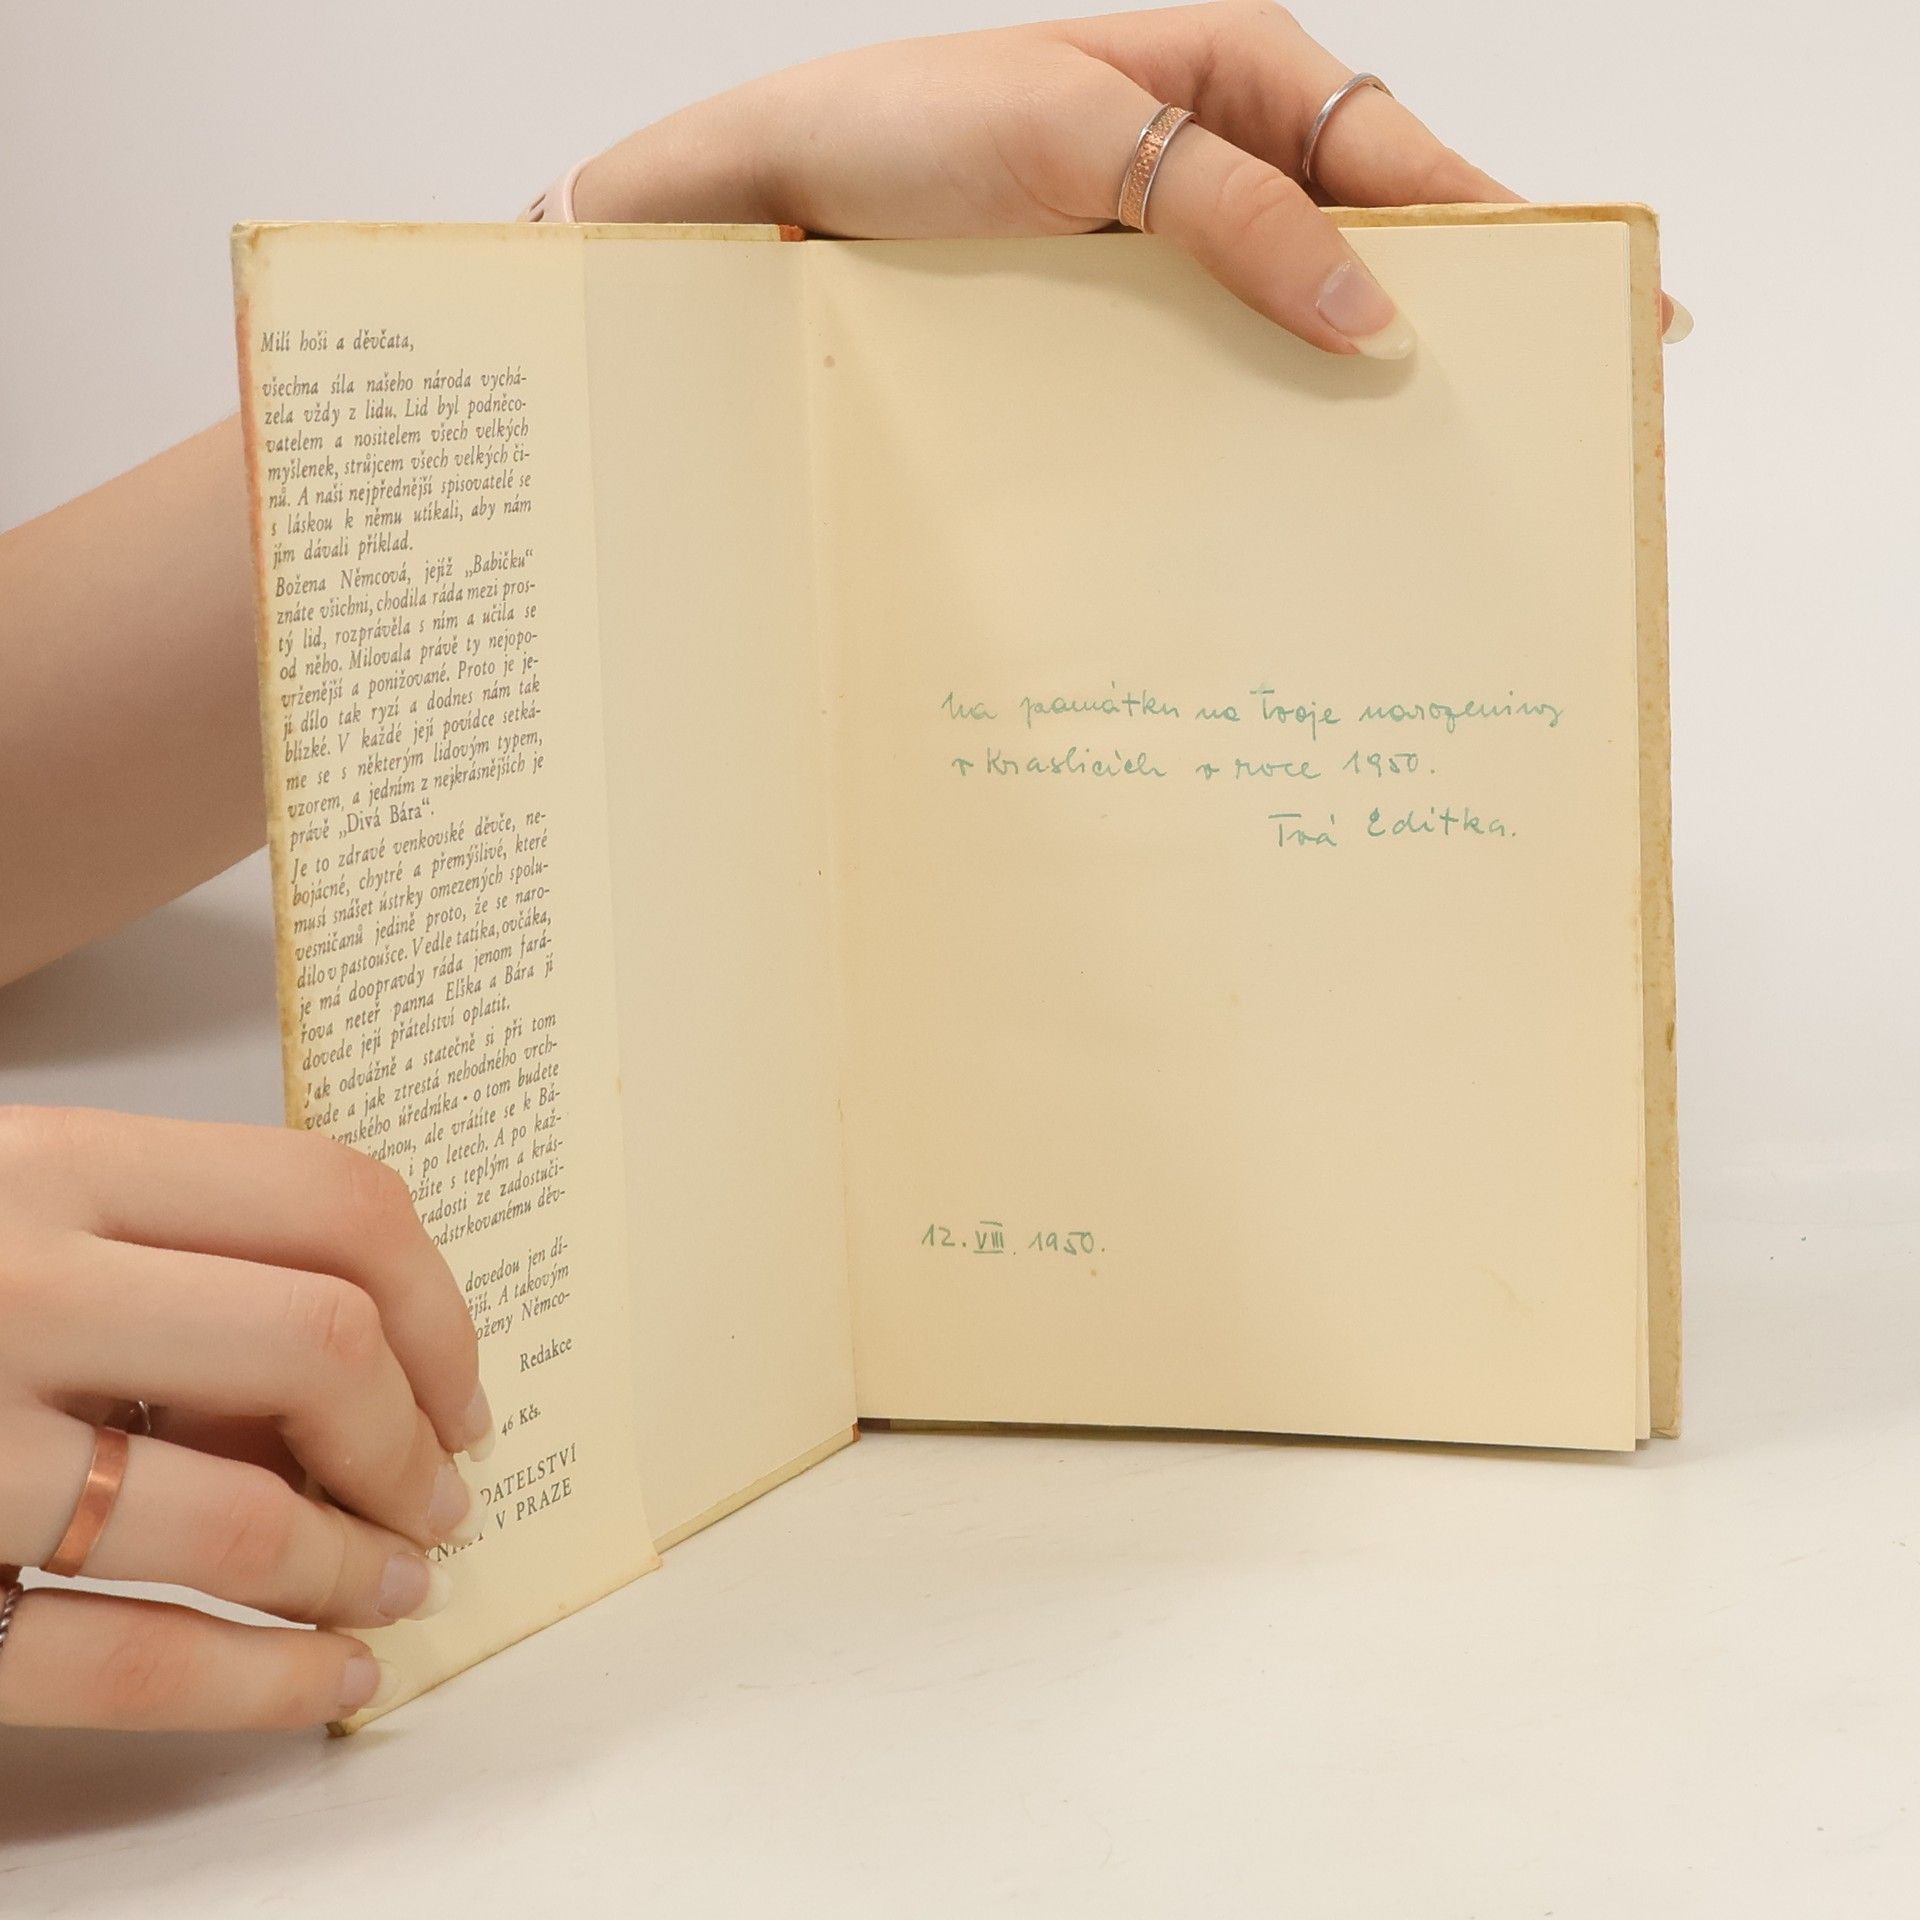 Milí hoši a děvčata,
všechna síla našeho národa vychá-
zela vždy z lidu. Lid byl podněco-
vatelem a nositelem všech velkých
myšlenek, strůjcem všech velkých či-
nů. A naši nejpřednější spisovatelé se
s láskou k němu utíkali, aby nám
jím dávali příklad.
Božena Němcová, jejíž „Babičku“
znáte všichni, chodila ráda mezi pros-
tý lid, rozprávěla s ním a učila se
od něho. Milovala právě ty nejopo-
vrženější a ponižované. Proto je je-
jí dílo tak ryzí a dodnes nám tak
blízké. V každé její povídce setká-
me se s některým lidovým typem,
vzorem, a jedním z nejkrásnějších je
právě „Divá Bára“.
Je to zdravé venkovské děvče, ne-
bojácné, chytré a přemýšlivé, které
musí snášet ústrky omezených spolu-
vesničanů jedině proto, že se naro-
dilo v pastoušce. Vedle tatíka, ovčáka,
je má doopravdy ráda jenom fará-
řova neteř panna Elška a Bára jí
dovede její přátelství oplatit.
Jak odvážně a statečně si při tom
vede a jak ztrestá nehodného vrch-
tenského úředníka • o tom budete
jednou, ale vrátíte se k Bá-
i po letech. A po kaž-
ožíte s teplým a krás-
radosti ze zadostuči-
odstrkovanému děv-
dovedou jen dí-
ější. A takovým
oženy Němco-
Redakce
46 Kčs.
DATELSTVÍ
V PRAZE
Na památku na Tvoje narozeniny
v Kraslicích v roce 1950.
Tvá Editka.
12. VIII. 1950.